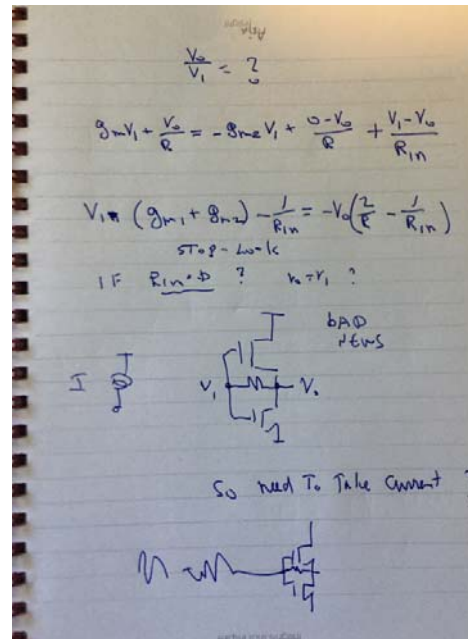 V₀/V₁ = ?
gmV₁ + V₀/R = -gm2 V₁ + 0-V₀/R + V₁-V₀/Rin
V₁ (gm1 + gm2) - 1/Rin = -V₀(2/R - 1/Rin)
STOP-LOOK
IF Rin=0 ? V₀=V₁ ?
BAD
NEWS
I
V₁ V₀
So need To Take Current